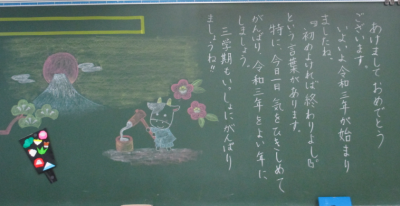 あけましておめでとう
ございます。
いよいよ令和三年が始まり
ましたね。
『初めよければ終わりよし』
という言葉があります。
特に、今日一日気をひきしめて
がんばり、令和三年をよい年に
しましょう。
三学期もいっしょにがんばり
ましょうね!!